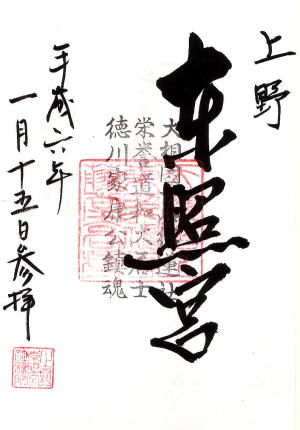 上野
東照宮
大相国
栄誉道和大居士
徳川家康公鎮魂
平成六年
一月十五日参拝